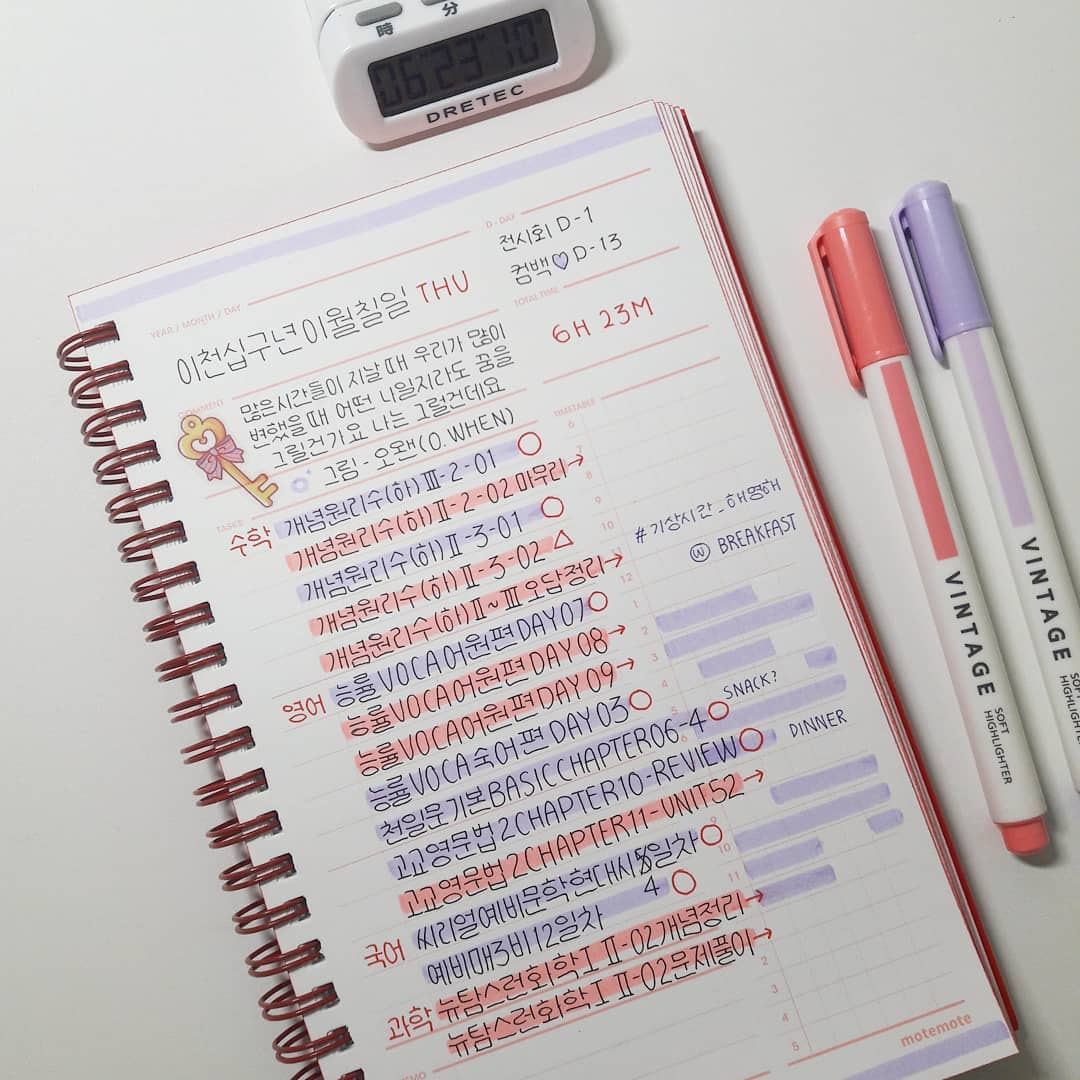 時 分
06 23 10
DRETEC
YEAR / MONTH / DAY
이천십구년이월칠일 THU
D-DAY
전시회 D-1
컴백♡D-13
TOTAL TIME
6H 23M
COMMENT
많은시간들이 지날 때 우리가 많이
변했을때 어떤 나일지라도 꿈을
그릴건가요 나는 그럴건데요
그림-오왠(O.WHEN)
TASKS
수학 개념원리수(하) Ⅲ-2-01 ○
개념원리수(하) Ⅱ-2-02 마무리→
개념원리수(하) Ⅱ-3-01 ○
개념원리수(하) Ⅱ-3-02 △
개념원리수(하) Ⅱ~Ⅲ 오답정리→
영어 능률VOCA어원편DAY07 ○
능률VOCA어원편DAY08 →
능률VOCA어원편DAY09 →
능률VOCA숙어편DAY03 ○
천일문기본BASIC CHAPTER06-4 ○
고교영문법2CHAPTER10-REVIEW ○
고교영문법2CHAPTER11-UNIT52 →
국어 씨리얼예비문학현대시 일차 ○
4
예비매3비12일차 ○
과학 뉴탐스런화학Ⅰ Ⅱ-02개념정리→
뉴탐스런화학Ⅰ Ⅱ-02문제풀이→
MEMO
TIMETABLE
6
7
8
9
10
11
12
1
2
3
4
5
6
9
10
11
2
3
4
5
#기상시간_해영해
ⓦ BREAKFAST
SNACK?
DINNER
motemote
VINTAGE
SOFT
HIGHLIGHTER
VINTAGE